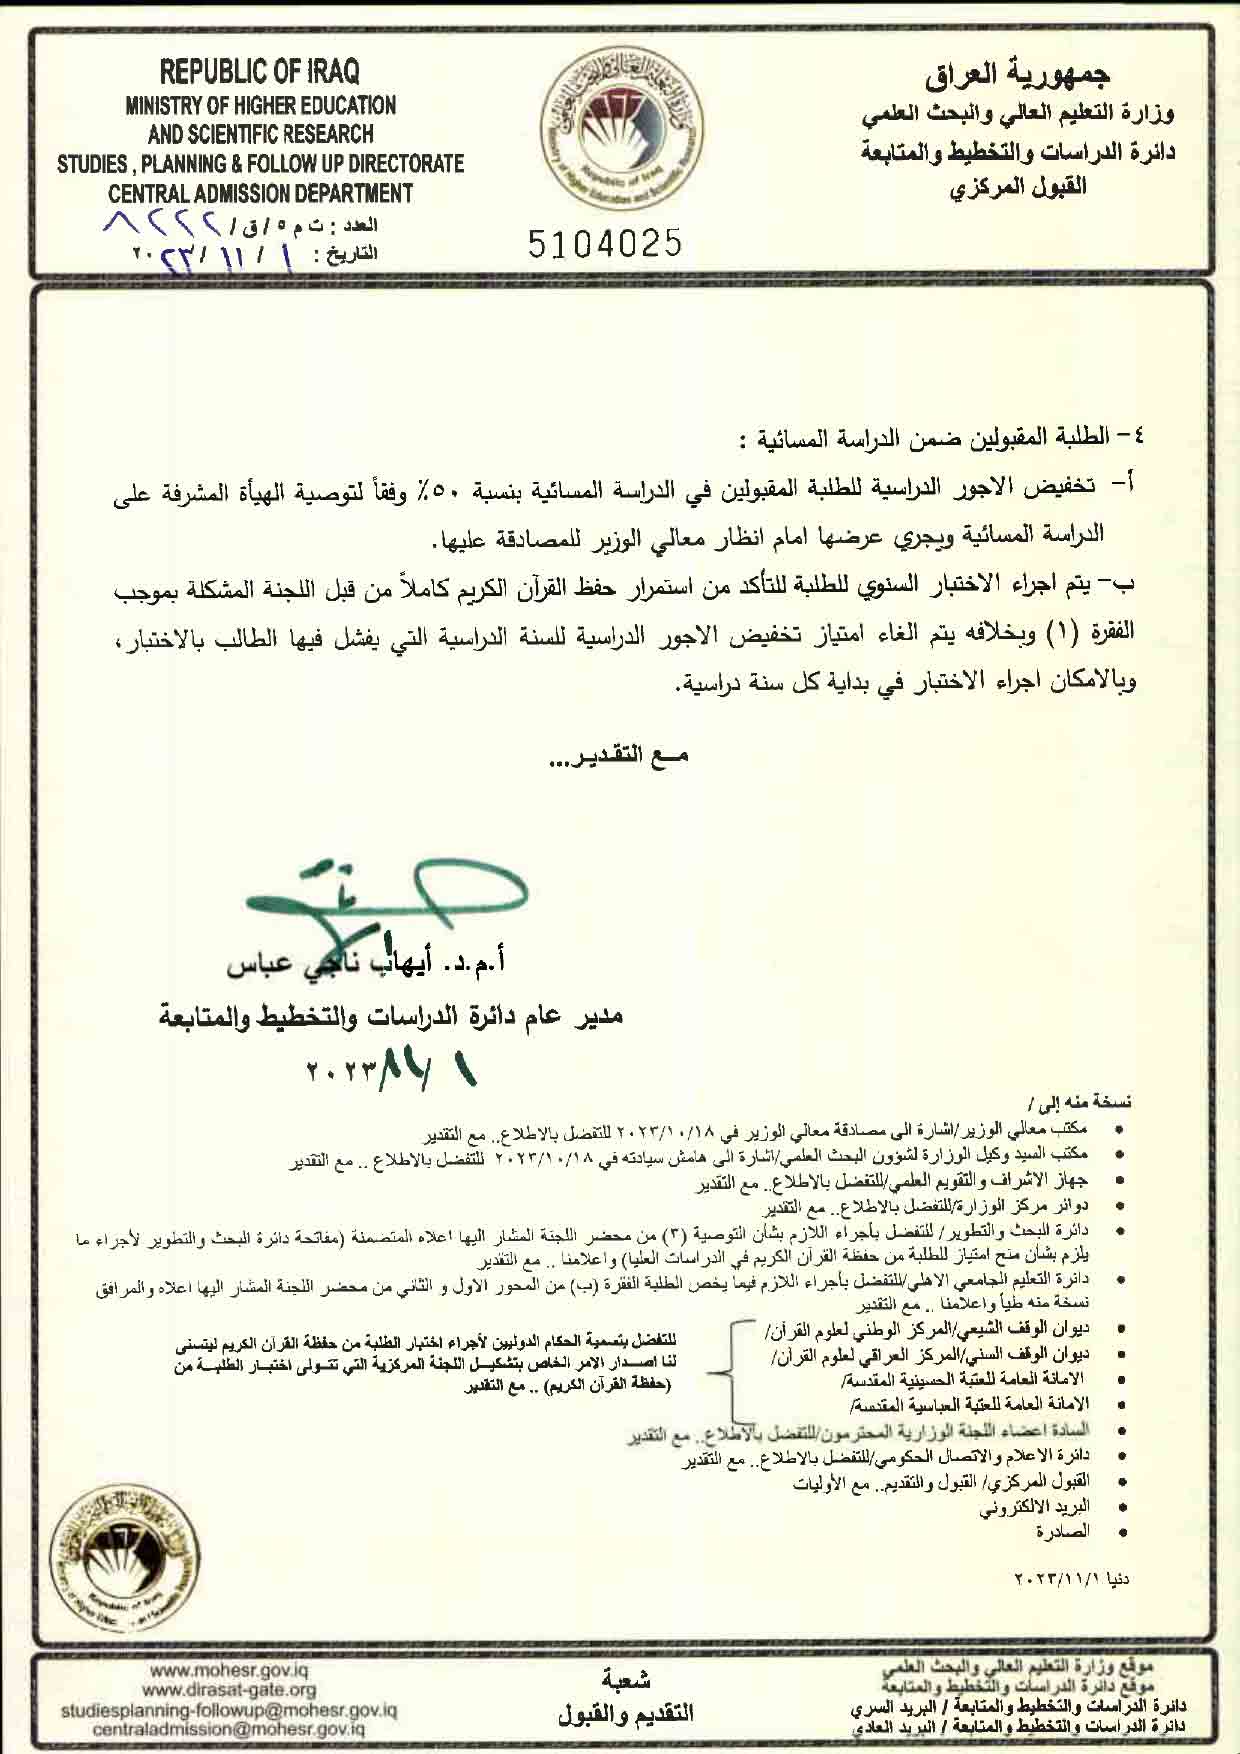 REPUBLIC OF IRAQ
MINISTRY OF HIGHER EDUCATION
AND SCIENTIFIC RESEARCH
STUDIES , PLANNING & FOLLOW UP DIRECTORATE
CENTRAL ADMISSION DEPARTMENT
العدد : ت م ٥ /ق/ ٨٢٢٢
التاريخ : ١ / ١١ /٢٠٢٣
5104025
جمهورية العراق
وزارة التعليم العالي والبحث العلمي
دائرة الدراسات والتخطيط والمتابعة
القبول المركزي
٤- الطلبة المقبولين ضمن الدراسة المسائية :
أ- تخفيض الاجور الدراسية للطلبة المقبولين في الدراسة المسائية بنسبة ٥٠٪ وفقاً لتوصية الهيأة المشرفة على
الدراسة المسائية ويجري عرضها امام انظار معالي الوزير للمصادقة عليها.
ب- يتم اجراء الاختبار السنوي للطلبة للتأكد من استمرار حفظ القرآن الكريم كاملاً من قبل اللجنة المشكلة بموجب
الفقرة (١) وبخلافه يتم الغاء امتياز تخفيض الاجور الدراسية للسنة الدراسية التي يفشل فيها الطالب بالاختبار،
وبالامكان اجراء الاختبار في بداية كل سنة دراسية.
مـع التقـديـر...
أ.م.د. أيهاب ناجي عباس
مدير عام دائرة الدراسات والتخطيط والمتابعة
١ /١١/ ٢٠٢٣
نسخة منه إلى /
• مكتب معالي الوزير/اشارة الى مصادقة معالي الوزير في ٢٠٢٣/١٠/١٨ للتفضل بالاطلاع.. مع التقدير
• مكتب السيد وكيل الوزارة لشؤون البحث العلمي/اشارة الى هامش سيادته في ٢٠٢٣/١٠/١٨ للتفضل بالاطلاع .. مع التقدير
• جهاز الاشراف والتقويم العلمي/للتفضل بالاطلاع.. مع التقدير
• دوائر مركز الوزارة/للتفضل بالاطلاع.. مع التقدير
• دائرة البحث والتطوير/ للتفضل بأجراء اللازم بشأن التوصية (٣) من محضر اللجنة المشار اليها اعلاه المتضمنة (مفاتحة دائرة البحث والتطوير لأجراء ما
يلزم بشأن منح امتياز للطلبة من حفظة القرآن الكريم في الدراسات العليا) واعلامنا .. مع التقدير
• دائرة التعليم الجامعي الاهلي/للتفضل بأجراء اللازم فيما يخص الطلبة الفقرة (ب) من المحور الاول و الثاني من محضر اللجنة المشار اليها اعلاه والمرافق
نسخة منه طياً واعلامنا .. مع التقدير
• ديوان الوقف الشيعي/المركز الوطني لعلوم القرآن/
• ديوان الوقف السني/المركز العراقي لعلوم القرآن/
• الامانة العامة للعتبة الحسينية المقدسة/
• الامانة العامة للعتبة العباسية المقدسة/
للتفضل بتسمية الحكام الدوليين لأجراء اختبار الطلبة من حفظة القرآن الكريم ليتسنى
لنا اصـدار الامر الخاص بتشكيـل اللجنة المركزية التي تتـولى اختبـار الطلبـة من
(حفظة القرآن الكريم) .. مع التقدير
• السادة اعضاء اللجنة الوزارية المحترمون/للتفضل بالاطلاع.. مع التقدير
• دائرة الاعلام والاتصال الحكومي/للتفضل بالاطلاع.. مع التقدير
• القبول المركزي/ القبول والتقديم.. مع الأوليات
• البريد الالكتروني
• الصادرة
دنيا ٢٠٢٣/١١/١
www.mohesr.gov.iq
www.dirasat-gate.org
studiesplanning-followup@mohesr.gov.iq
centraladmission@mohesr.gov.iq
شعبة
التقديم والقبول
موقع وزارة التعليم العالي والبحث العلمي
موقع دائرة الدراسات والتخطيط والمتابعة
دائرة الدراسات والتخطيط والمتابعة / البريد السري
دائرة الدراسات والتخطيط والمتابعة / البريد العادي